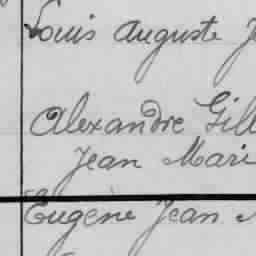 Louis Auguste J
Alexandre Gill
Jean Mari
Eugène Jean M